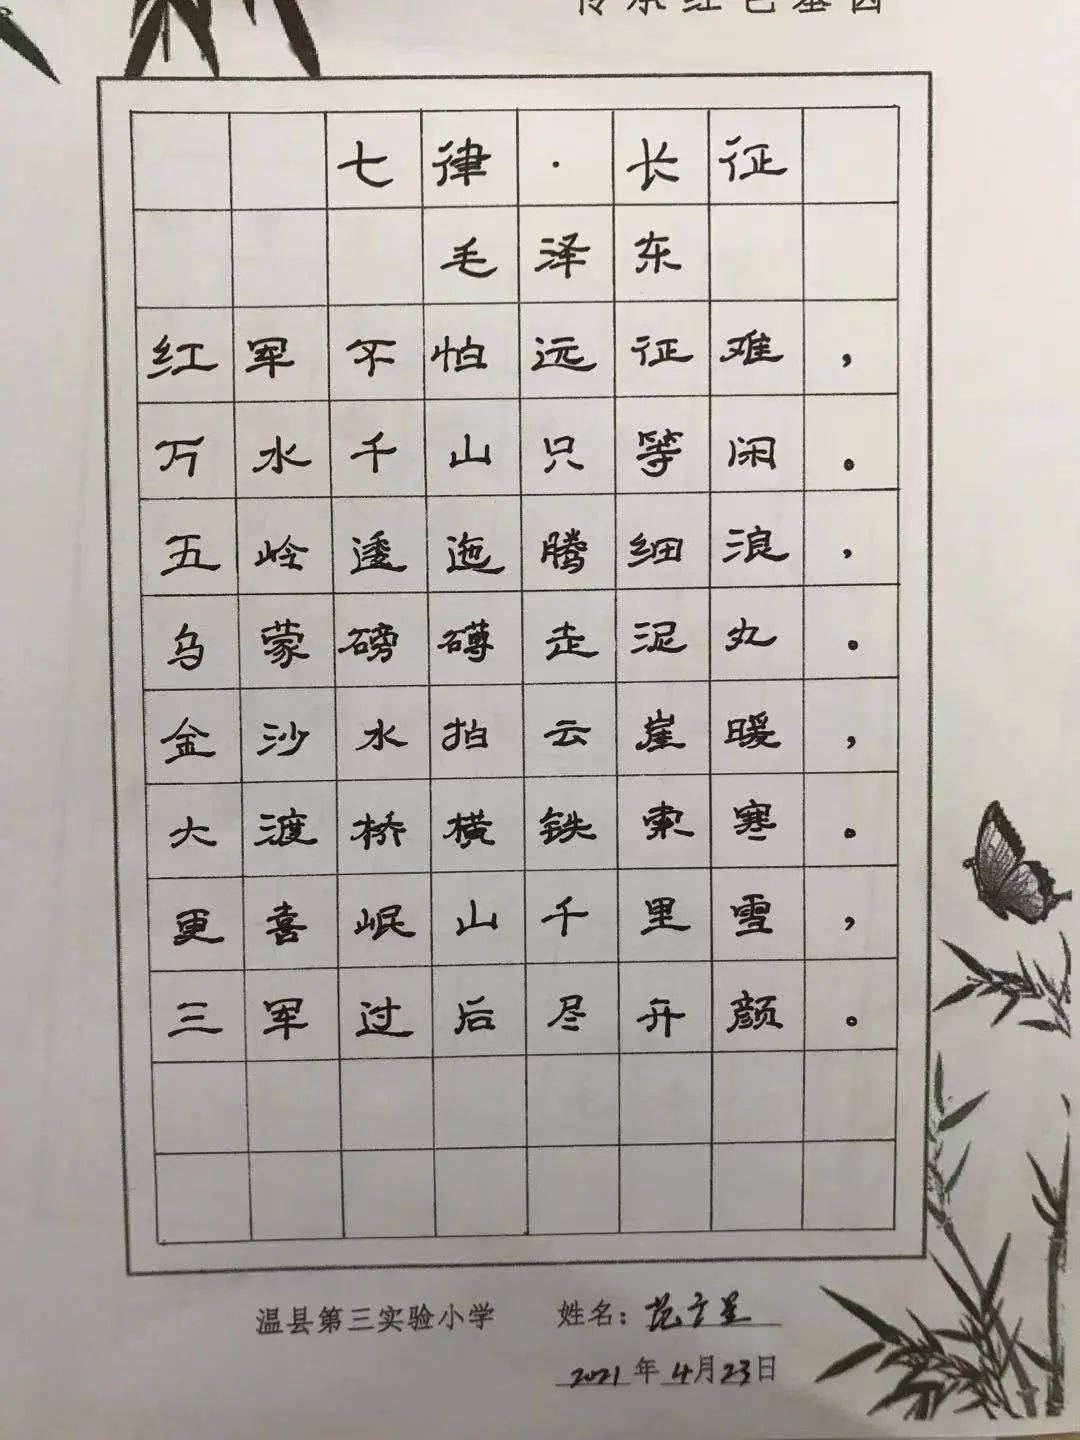 传承红色基因
七律·长征
毛泽东
红军不怕远征难，
万水千山只等闲。
五岭逶迤腾细浪，
乌蒙磅礴走泥丸。
金沙水拍云崖暖，
大渡桥横铁索寒。
更喜岷山千里雪，
三军过后尽开颜。
温县第三实验小学 姓名：范方星
2021年4月23日